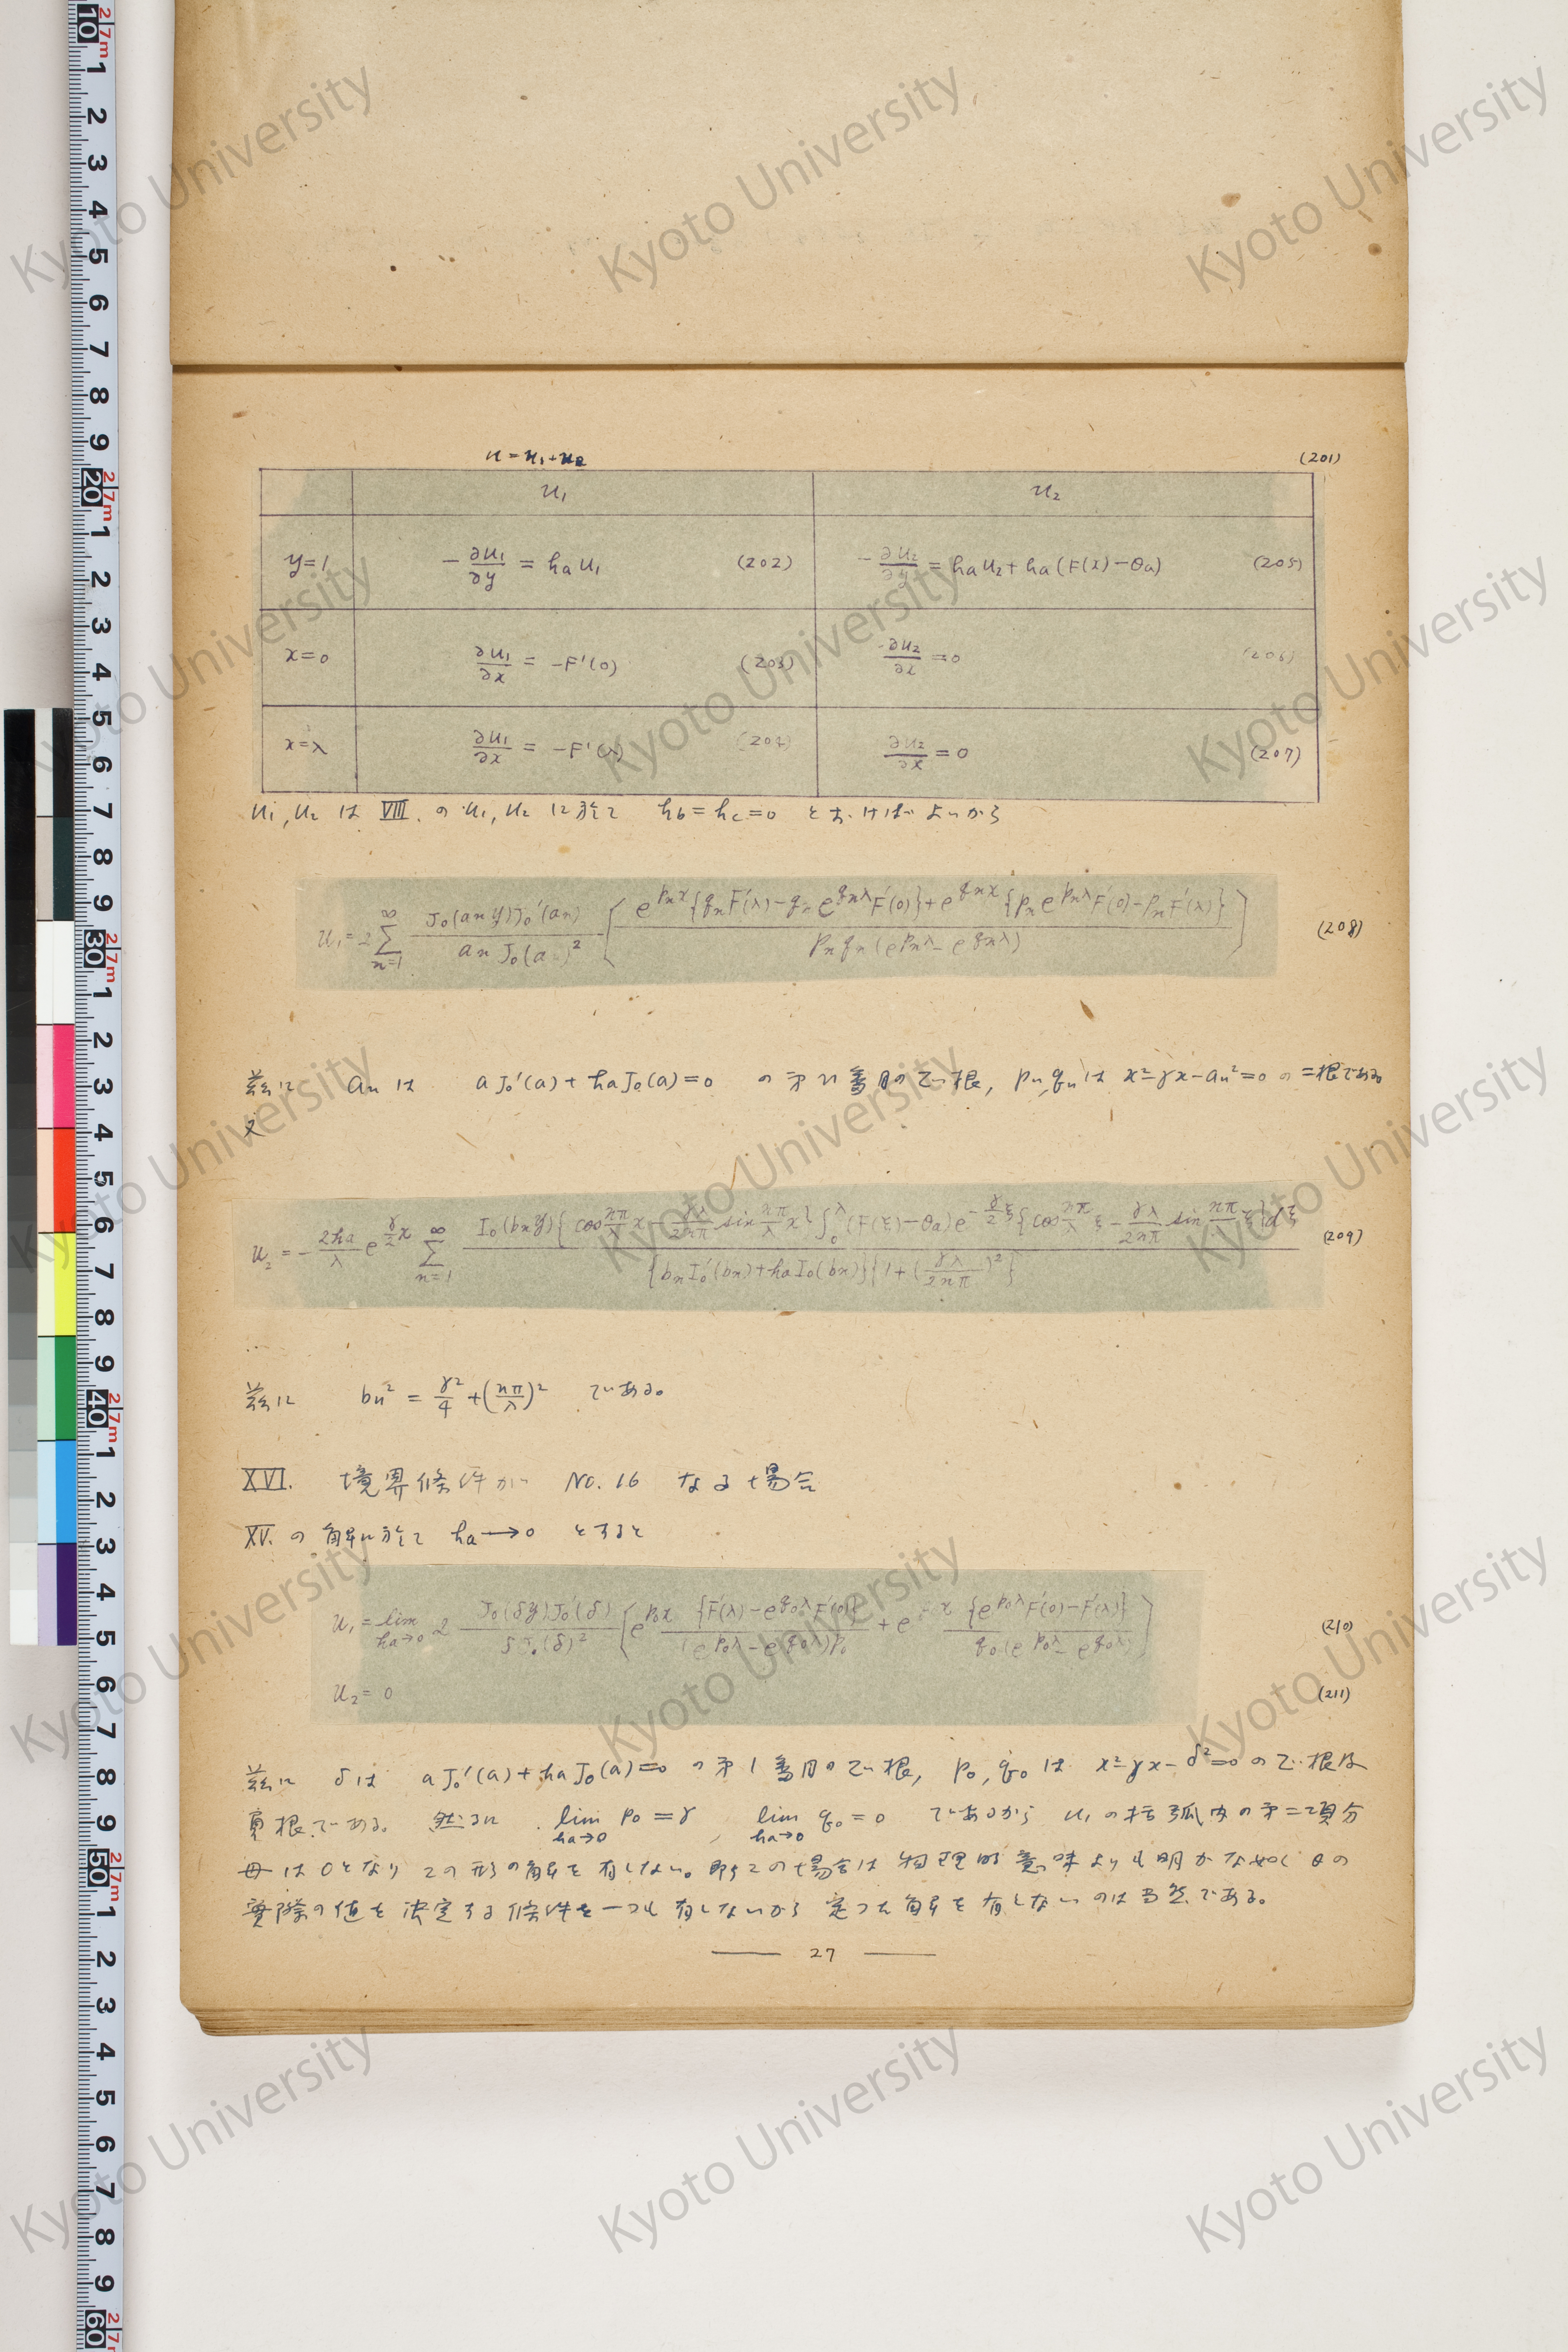 u = u₁ + u₂ (201)
u₁ u₂
y=1 -∂u₁/∂y = ha u₁ (202) -∂u₂/∂y = ha u₂ + ha(F(x)-θa) (205)
x=0 ∂u₁/∂x = -F'(0) (203) ∂u₂/∂x = 0 (206)
x=λ ∂u₁/∂x = -F'(λ) (204) ∂u₂/∂x = 0 (207)
u₁, u₂ は VIII. の u₁, u₂ に於て hb = hc = 0 とおけばよいから
u₁ = 2 Σ_{n=1}^{∞} J₀(an y) J₀'(an) / an J₀(a )² { e^{pn x}{qn F'(λ) - qn e^{qn λ} F'(0)} + e^{qn x}{pn e^{pn λ} F'(0) - pn F'(λ)} / pn qn (e^{pn λ} - e^{qn λ}) } (208)
茲に an は a J₀'(a) + ha J₀(a) = 0 の第 n 番目の正根, pn, qn は x² - γx - an² = 0 の二根である
又
u₂ = - 2ha/λ e^{γ/2 x} Σ_{n=1}^{∞} I₀(bn y){cos nπ/λ x - γλ/2nπ sin nπ/λ x} ∫₀^λ (F(ξ) - θa) e^{-γ/2 ξ} {cos nπ/λ ξ - γλ/2nπ sin nπ/λ ξ} dξ / {bn I₀'(bn) + ha I₀(bn)}{1 + (γλ/2nπ)²} (209)
茲に bn² = γ²/4 + (nπ/λ)² である。
XVI. 境界條件が No. 16 なる場合
XV. の解に於て ha → 0 とすると
u₁ = lim_{ha→0} 2 J₀(δy) J₀'(δ) / δ J₀(δ)² { e^{p₀x} {F'(λ) - e^{q₀λ} F'(0)} / (e^{p₀λ} - e^{q₀λ}) p₀ + e x {e^{p₀λ} F'(0) - F'(λ)} / q₀ (e^{p₀λ} - e^{q₀λ}) } (210)
u₂ = 0 (211)
茲に δ は a J₀'(a) + ha J₀(a) = 0 の第 1 番目の正根, p₀, q₀ は x² - γx - δ² = 0 の正根及
負根である。然るに lim_{ha→0} p₀ = γ , lim_{ha→0} q₀ = 0 であるから u₁ の括弧内の第二項分
母は 0 となりこの形の解を有しない。即ちこの場合は物理的意味よりも明かな如く θ の
實際の値を決定する條件を一つも有しないから定つた解を有しないのは当然である。
27
10 1 2 3 4 5 6 7 8 9 20 1 2 3 4 5 6 7 8 9 30 1 2 3 4 5 6 7 8 9 40 1 2 3 4 5 6 7 8 9 50 1 2 3 4 5 6 7 8 9 60
Kyoto University